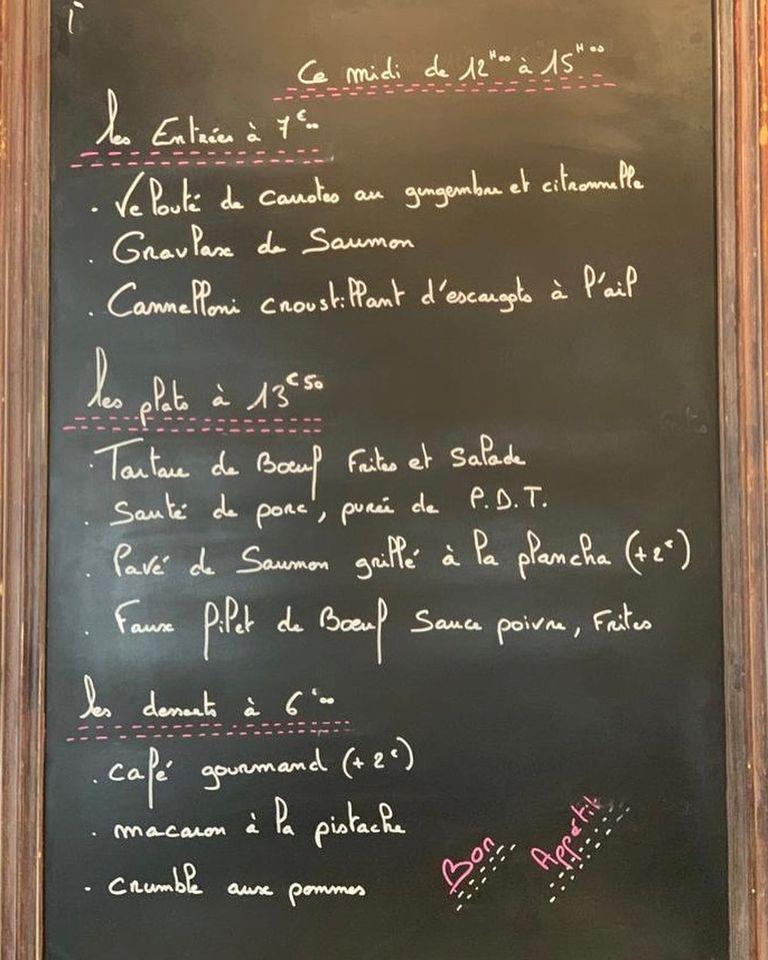 Ce midi de 12H00 à 15H00
les Entrées à 7€00
. Velouté de carottes au gingembre et citronnelle
. Gravlaxe de Saumon
. Cannelloni croustillant d'escargots à l'ail
les plats à 13€50
. Tartare de Bœuf Frites et Salade
. Sauté de porc, purée de P.D.T.
. Pavé de Saumon grillé à la plancha (+2€)
. Faux filet de Bœuf Sauce poivre, Frites
les desserts à 6€00
. café gourmand (+2€)
. macaron à la pistache
- crumble aux pommes
Bon Appétit